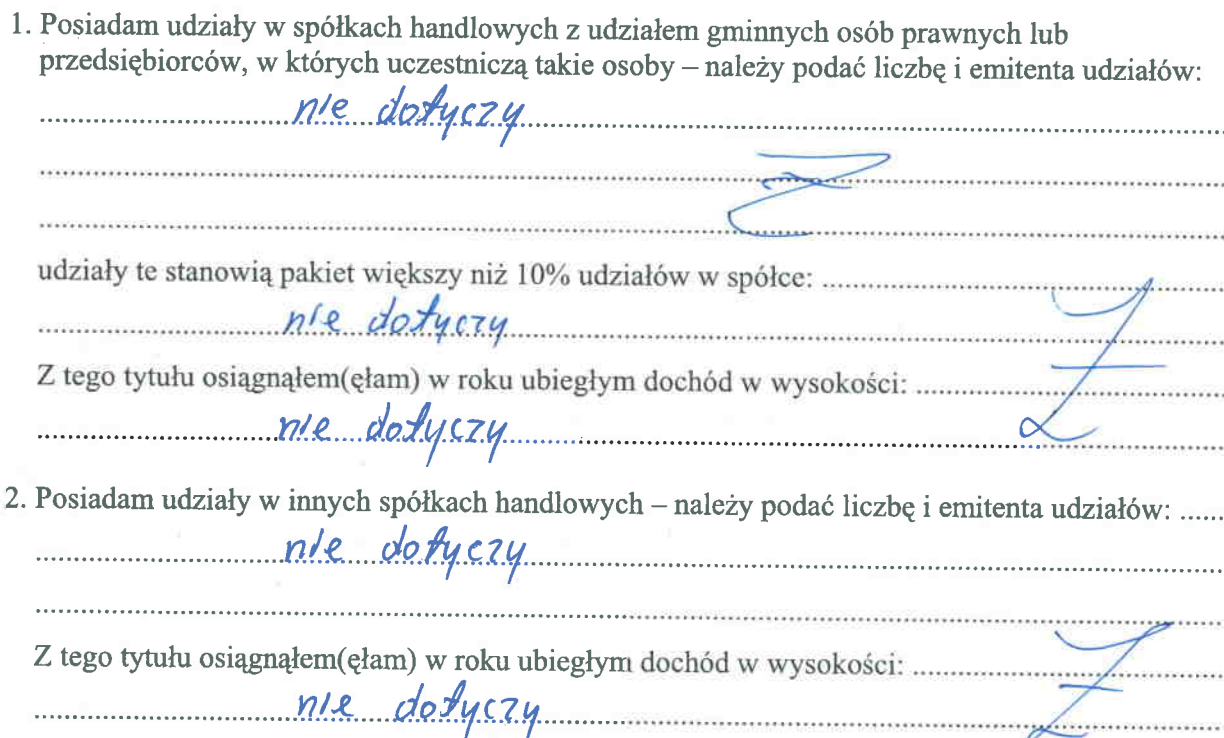 1. Posiadam udziały w spółkach handlowych z udziałem gminnych osób prawnych lub
przedsiębiorców, w których uczestniczą takie osoby – należy podać liczbę i emitenta udziałów:
nie dotyczy
udziały te stanowią pakiet większy niż 10% udziałów w spółce:
nie dotyczy
Z tego tytułu osiągnąłem(ęłam) w roku ubiegłym dochód w wysokości:
nie dotyczy
2. Posiadam udziały w innych spółkach handlowych – należy podać liczbę i emitenta udziałów:
nie dotyczy
Z tego tytułu osiągnąłem(ęłam) w roku ubiegłym dochód w wysokości:
nie dotyczy